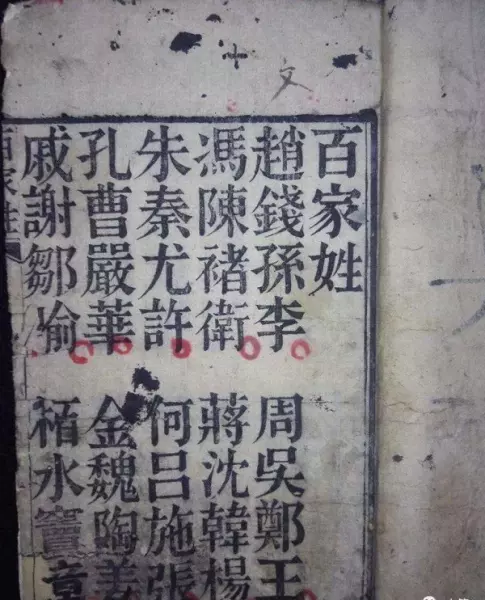 十 文
百家姓
趙錢孫李 周吳鄭王
馮陳褚衛 蔣沈韓楊
朱秦尤許 何呂施張
孔曹嚴華 金魏陶姜
戚謝鄒喻 栢水竇童
百家姓